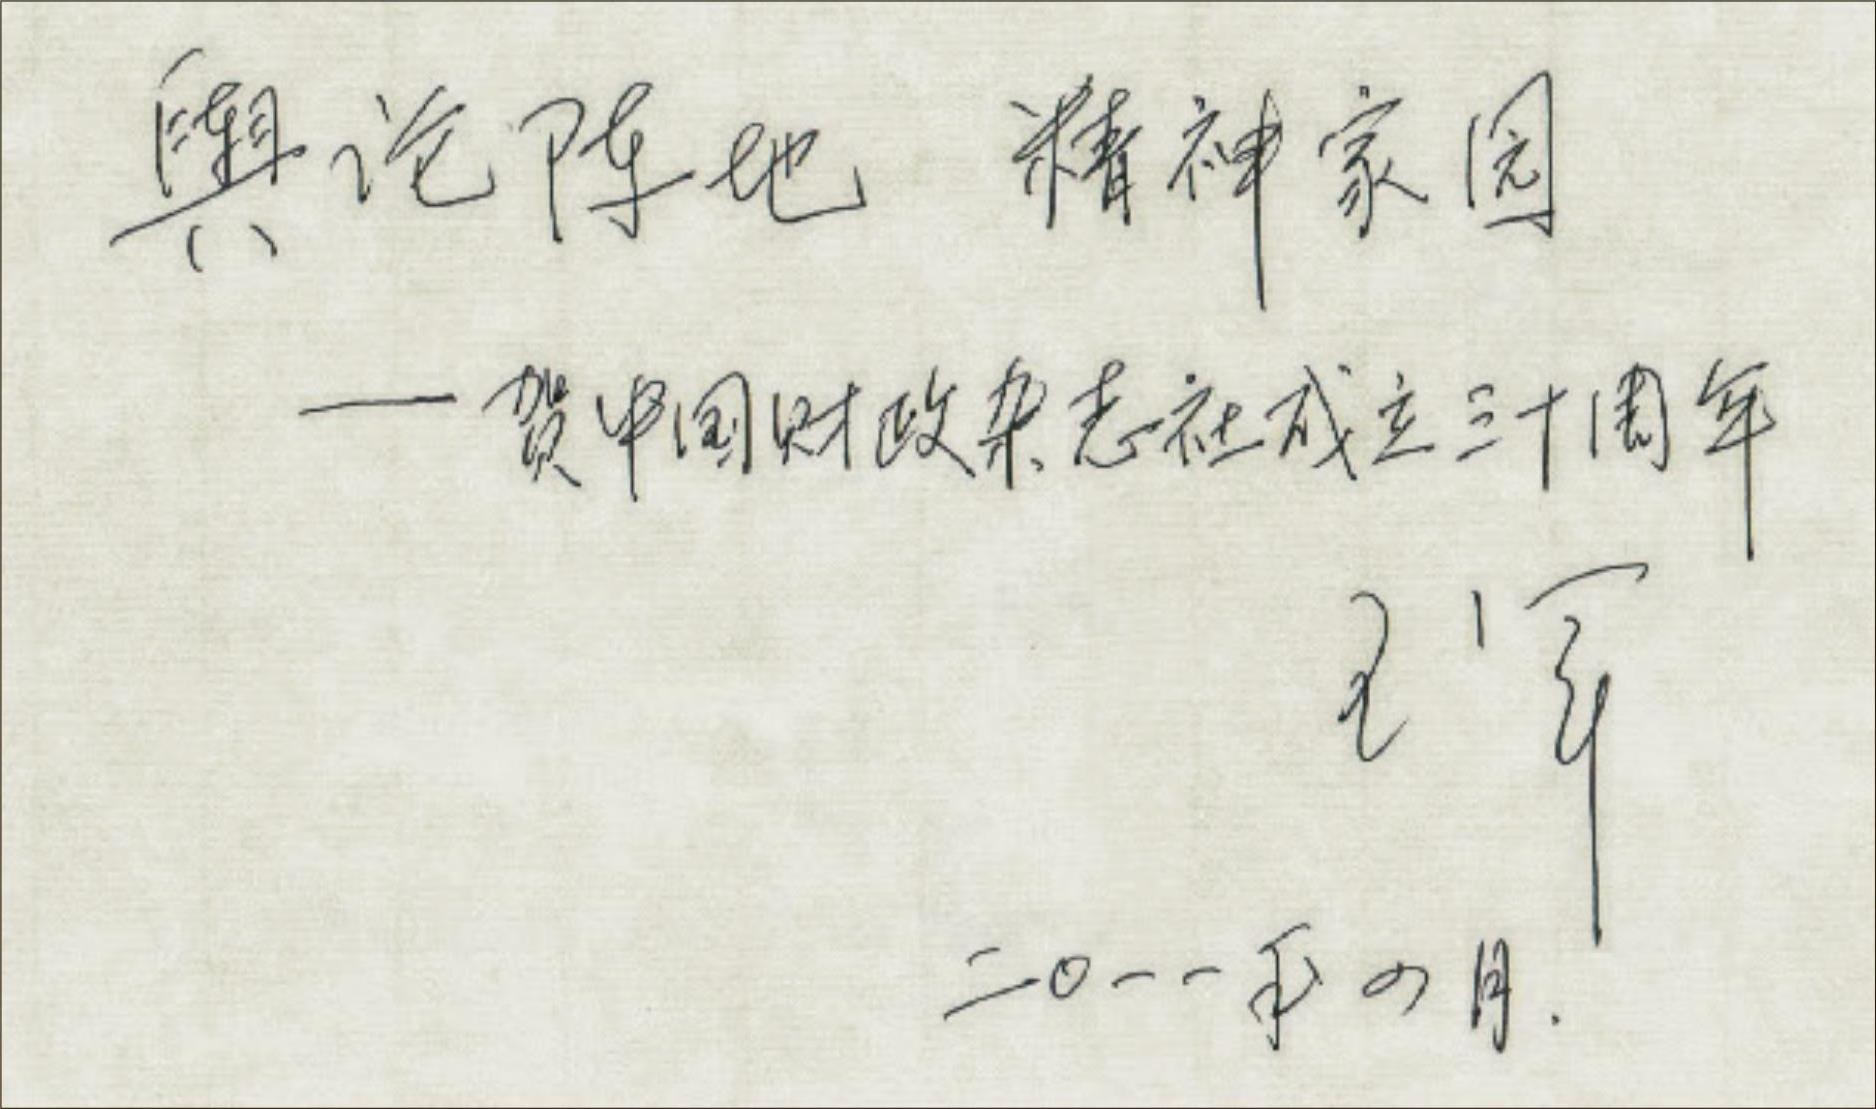 舆论阵地 精神家园
—贺中国财政杂志社成立三十周年
王军
二〇一一年四月.